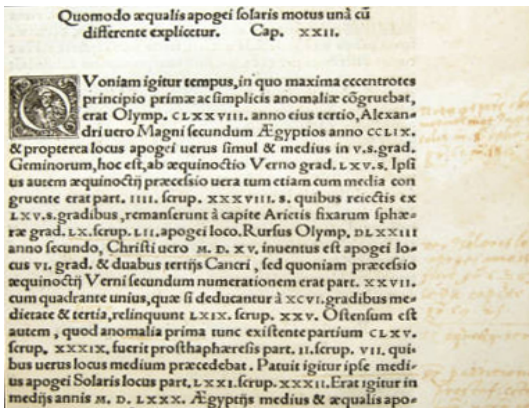 Quomodo æqualis apogei solaris motus unà cũ
differente explicetur. Cap. XXII.
QVoniam igitur tempus, in quo maxima eccentrotes
principio primæ ac simplicis anomaliæ cõgruebat,
erat Olymp. CLXXVIII. anno eius tertio, Alexan-
dri uero Magni secundum Ægyptios anno CCLIX.
& propterea locus apogei uerus simul & medius in V.s.grad.
Geminorum, hoc est, ab æquinoctio Verno grad. LXV.s. Ipsi
us autem æquinoctij præcessio uera tum etiam cum media con
gruente erat part. IIII. scrup. XXXVIII. s. quibus reiectis ex
LXV.s.gradibus, remanserunt à capite Arietis fixarum sphæ-
ræ grad. LX. scrup. LII. apogei loco. Rursus Olymp. DLXXIII
anno secundo, Christi uero M. D. XV. inuentus est apogei lo-
cus VI. grad. & duabus tertijs Cancri, sed quoniam præcessio
æquinoctij Verni secundum numerationem erat part. XXVII.
cum quadrante unius, quæ si deducantur à XCVI. gradibus me-
dietate & tertia, relinquunt LXIX. scrup. XXV. Ostensum est
autem, quod anomalia prima tunc existente partium CLXV.
scrup. XXXIX. fuerit prosthaphæresis part. II. scrup. VII. qui-
bus uerus locus medium præcedebat. Patuit igitur ipse medi-
us apogei Solaris locus part. LXXI. scrup. XXXII. Erat igitur in
medijs annis M. D. LXXX. Ægyptijs medius & æqualis apo-